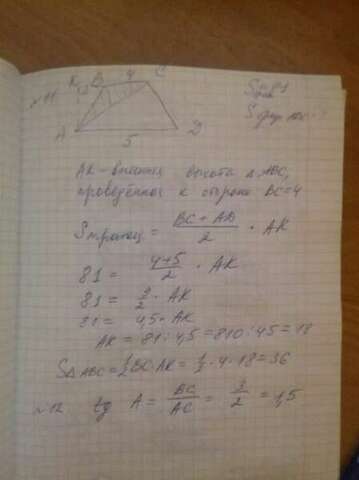 №11
K B 4 C
A 5 D
S трап = 81
S
АК – внешняя высота Δ ABC,
проведённая к стороне BC=4
Sтрапец = BC + AD / 2 · AK
81 = 4+5 / 2 · AK
81 = 9/2 · AK
81 = 4,5 · AK
AK = 81 : 4,5 = 810 : 45 = 18
SΔABC = 1/2 BC·AK = 1/2 · 4 · 18 = 36
№12. tg A = BC / AC = 3 / 2 = 1,5